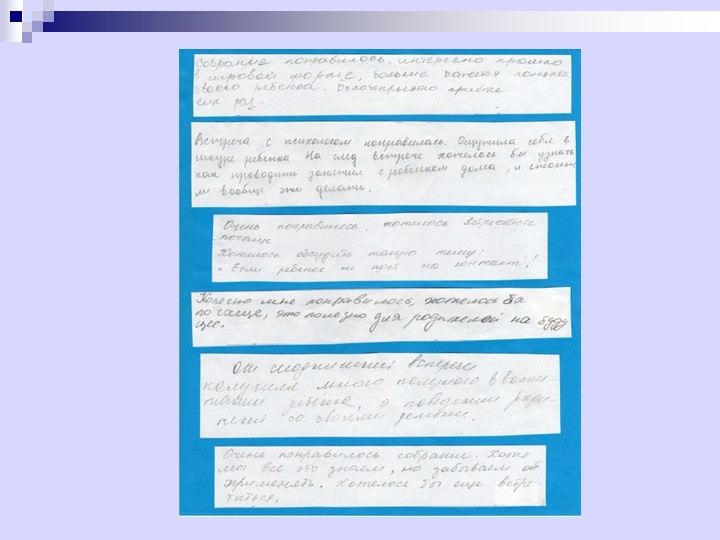 Собрание понравилось. интересно прошло
в игровой форме, больше
своего ребенка.
еще раз.
Встреча с психологом понравилась. Ощутила себя в
шкуре ребенка. На след встрече хотелось бы узнать
как проводить занятия с ребенком дома, и стоит
ли вообще это делать.
Очень понравилось, хотелось встречаться
почаще
Хотелось обсудить такую тему:
"Если ребенок не идет на контакт"!
Конечно мне понравилось, хотелось бы
почаще, это полезно для родителей на буду
щее.
От сегодняшней встречи
получила много полезного в воспи-
тании ребенка, о поведении
со своими детьми.
Очень понравилось собрание. Хоте
мы все это знаем, но забываем об
применять. Хотелось бы еще встре-
титься.